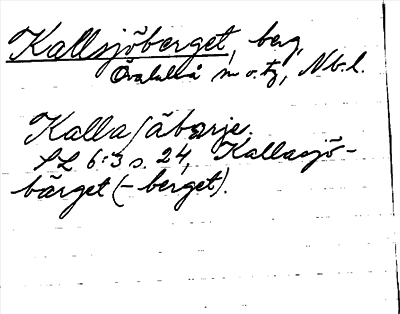 Kallsjöberget, berg,
Överluleå sn o. tg, Nb.l.
Kallasjäbärje.
SL 6:3 s. 24, Kallasjö-
bärget (-berget).